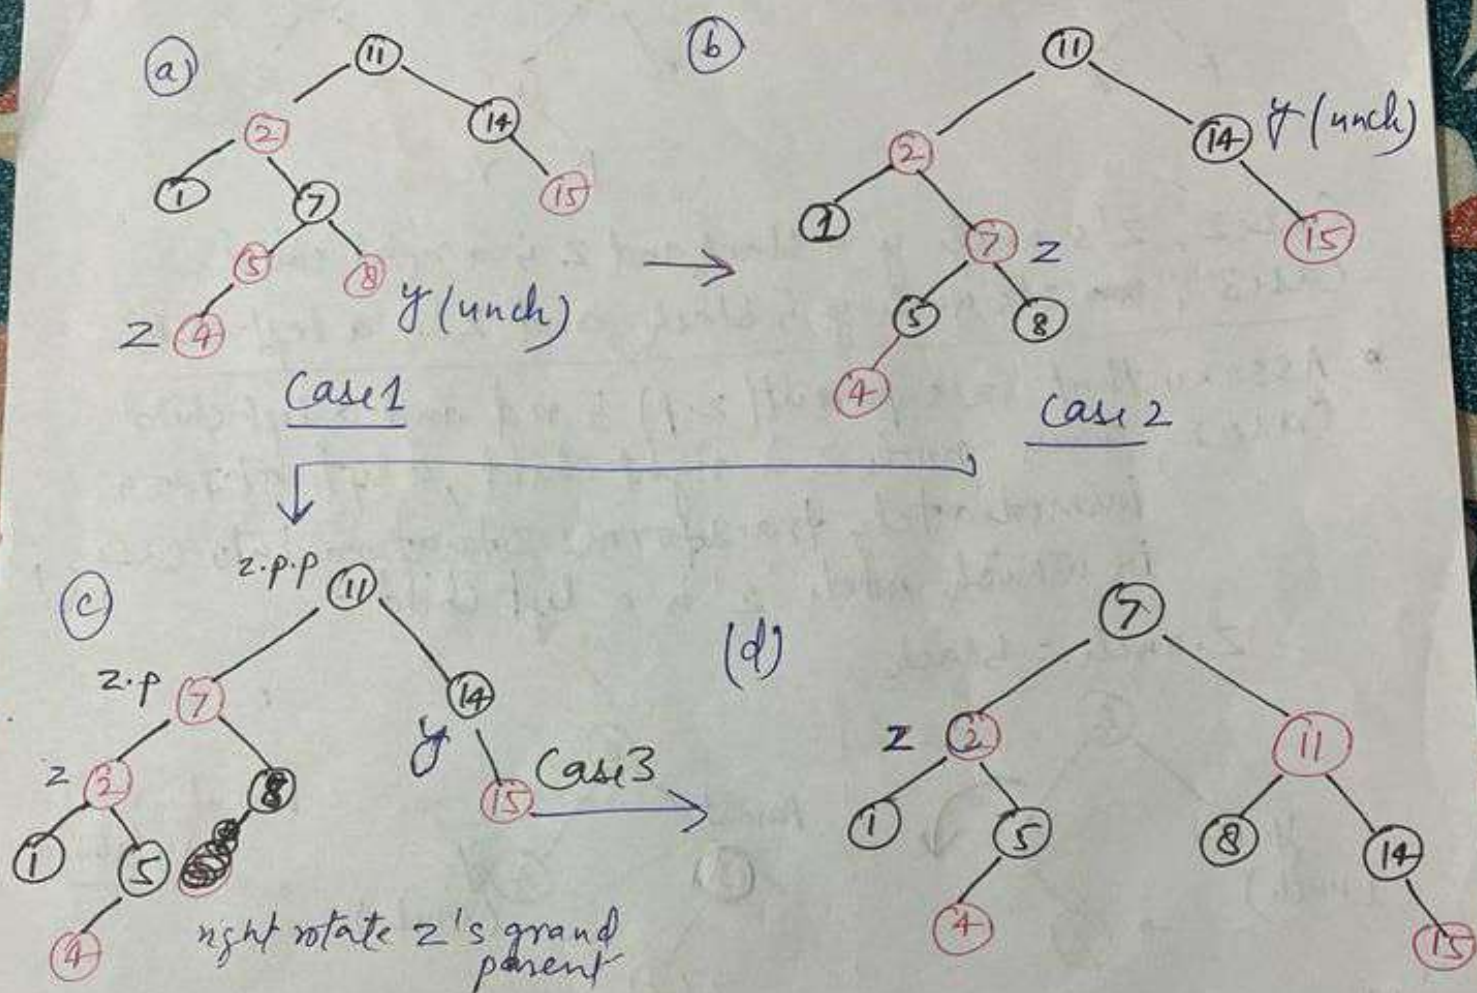 a
11
2
14
1
7
15
5
8
y (unch)
z
4
Case 1
b
11
2
14
y (unch)
1
7
z
15
5
8
4
Case 2
c
z.p.p
11
z.p
7
14
y
z
2
8
15
Case 3
1
5
4
right rotate z's grand
parent
(d)
7
z
2
11
1
5
8
14
4
15